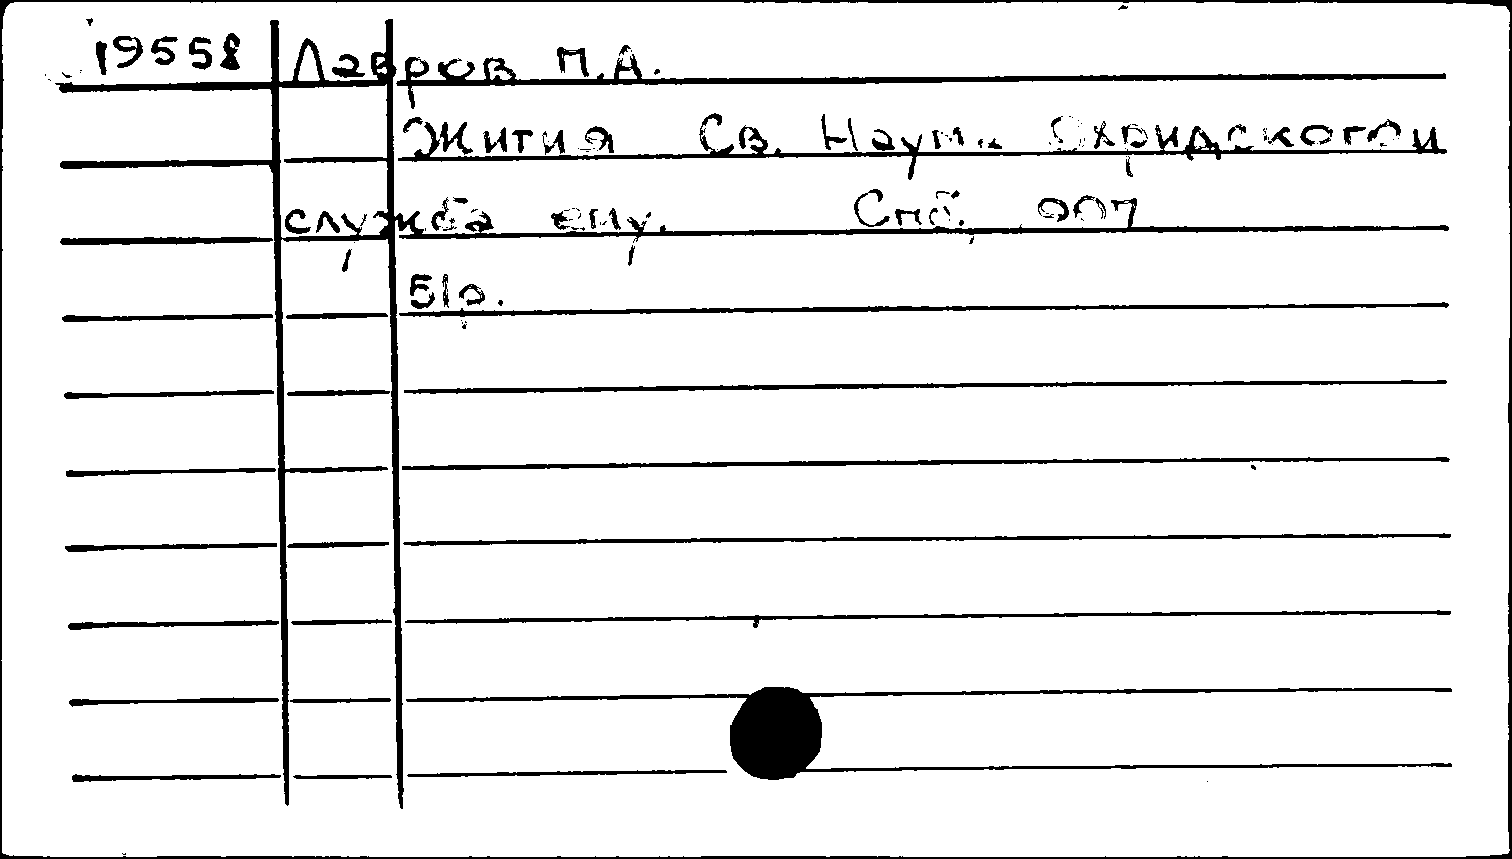 19558 Лавров П.А.
Жития Св. Наума Охридского и
служба ему. Спб., 907
51р.